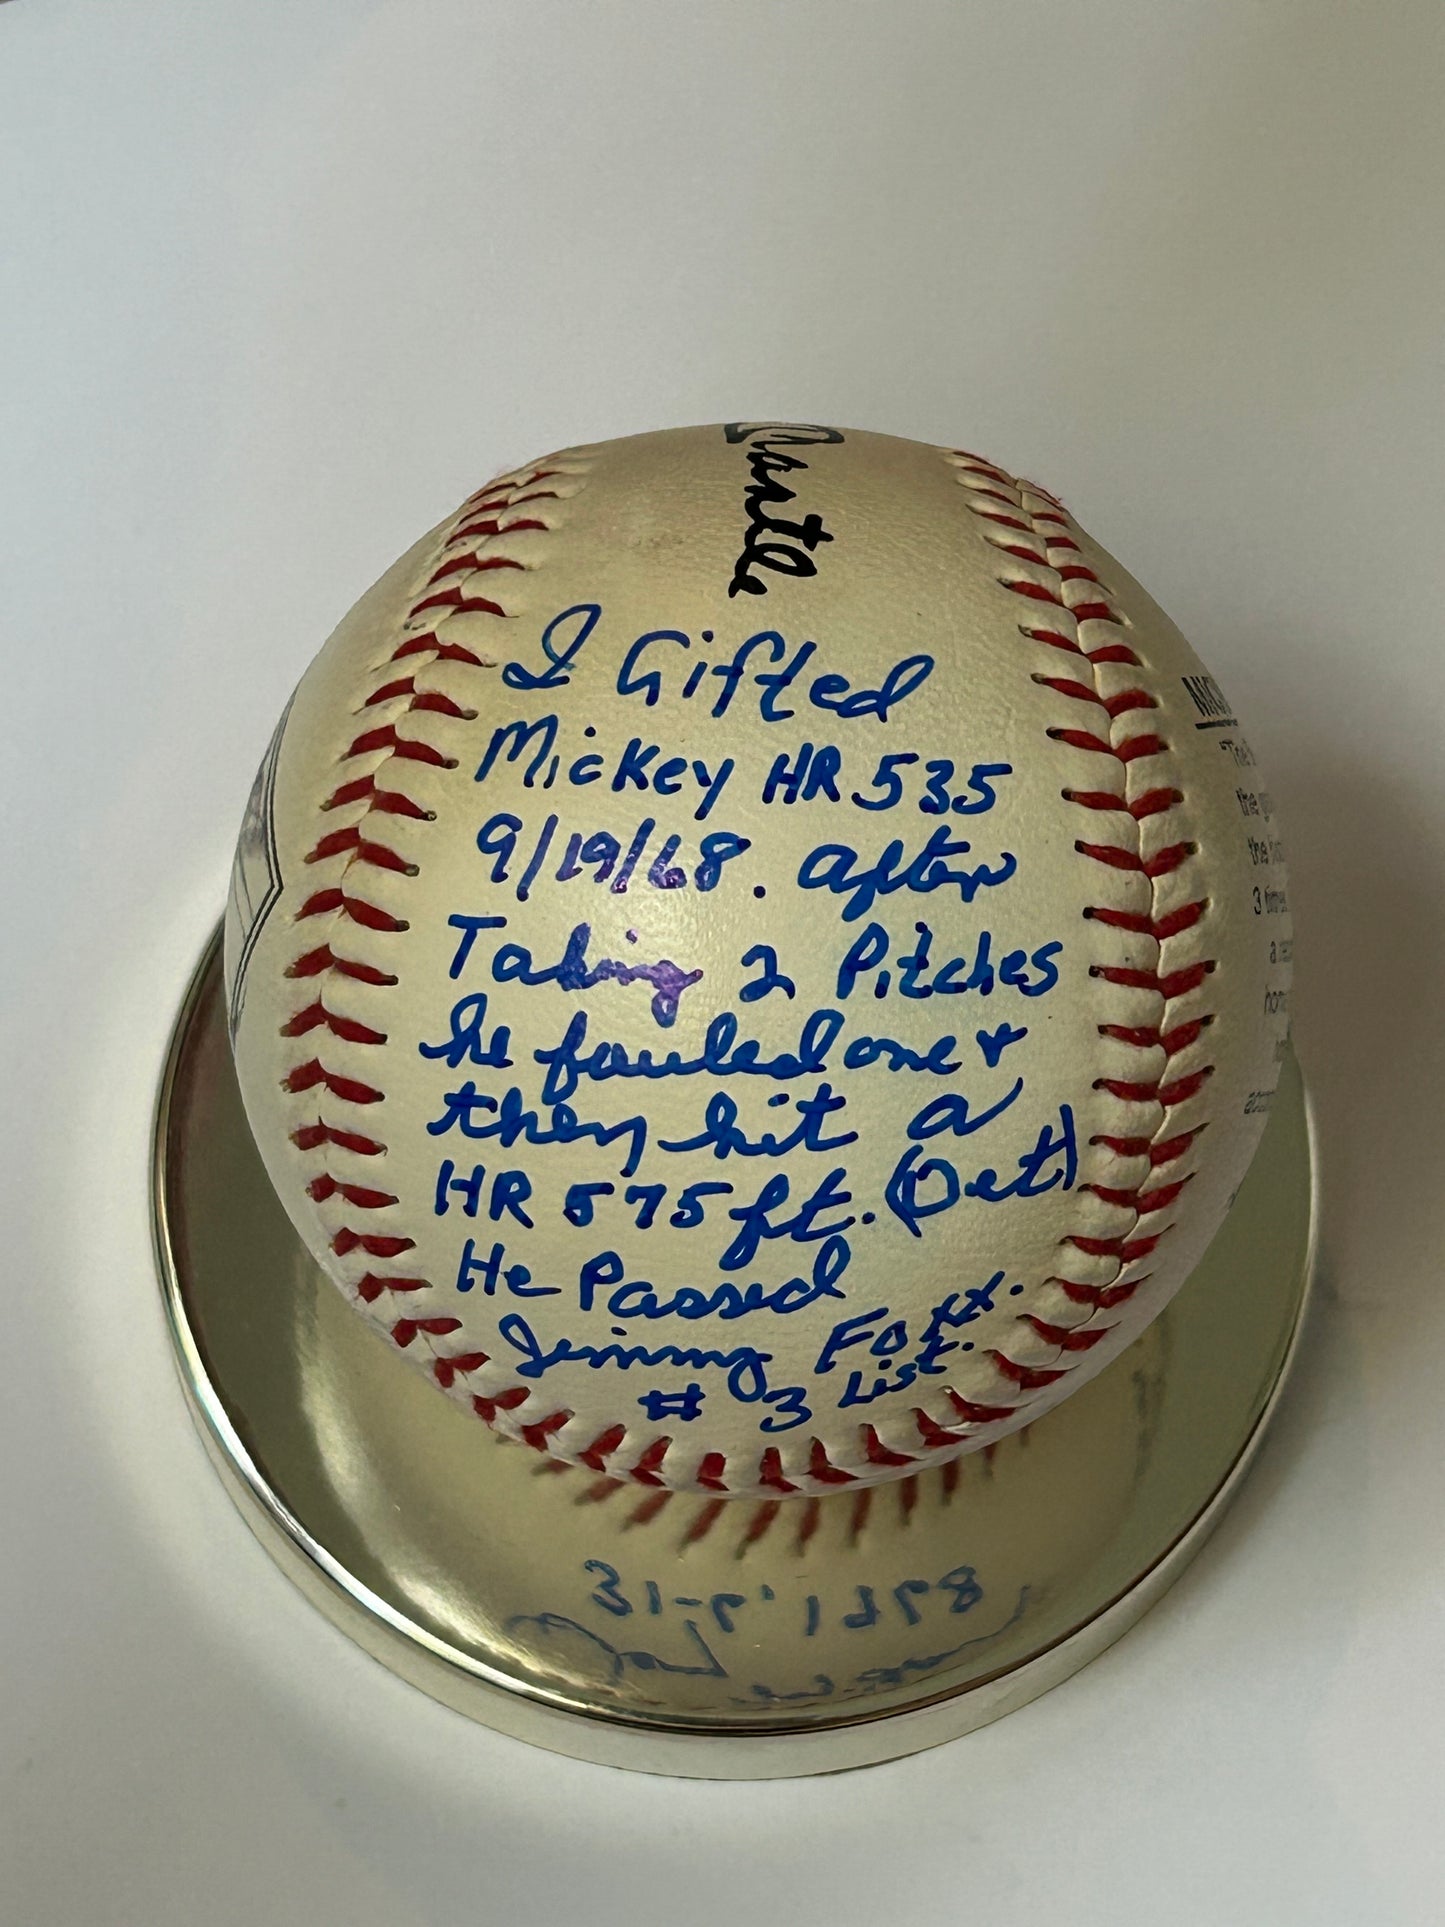 Mantle
I Gifted
Mickey HR 535
9/19/68. after
Taking 2 Pitches
he fouled one +
then hit a
HR 575 ft. (Det)
He Passed
Jimmy Foxx.
# 3 List.
the
3
a
31-6